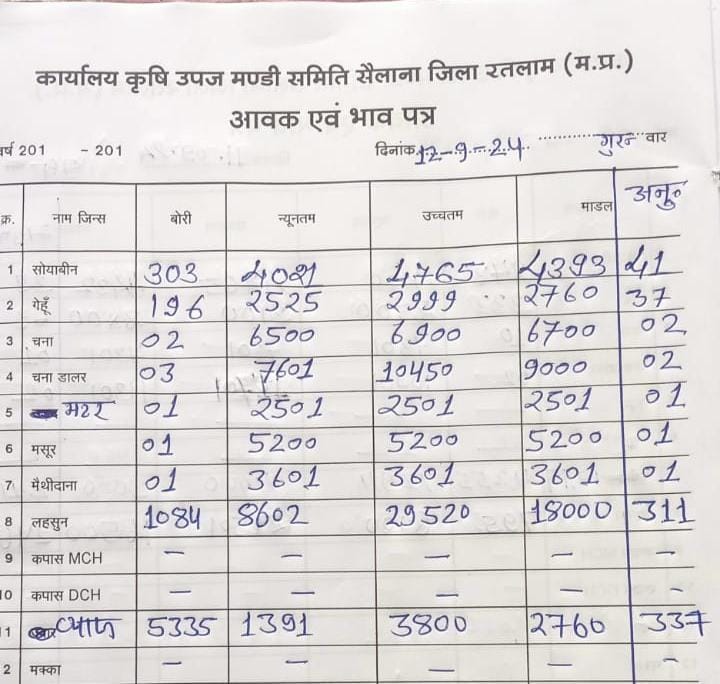 कार्यालय कृषि उपज मण्डी समिति सैलाना जिला रतलाम (म.प्र.)
आवक एवं भाव पत्र
वर्ष 201 - 201 दिनांक 12-9-24 गुरू वार
क्र. नाम जिन्स बोरी न्यूनतम उच्चतम माडल अनु०
1 सोयाबीन 303 4021 4765 4393 41
2 गेहूँ 196 2525 2999 2760 37
3 चना 02 6500 6900 6700 02
4 चना डालर 03 7601 10450 9000 02
5 मटर 01 2501 2501 2501 01
6 मसूर 01 5200 5200 5200 01
7 मैथीदाना 01 3601 3601 3601 01
8 लहसुन 1084 8602 29520 18000 311
9 कपास MCH — — — — —
10 कपास DCH — — — — —
11 प्याज 5335 1391 3800 2760 337
2 मक्का — — — — —